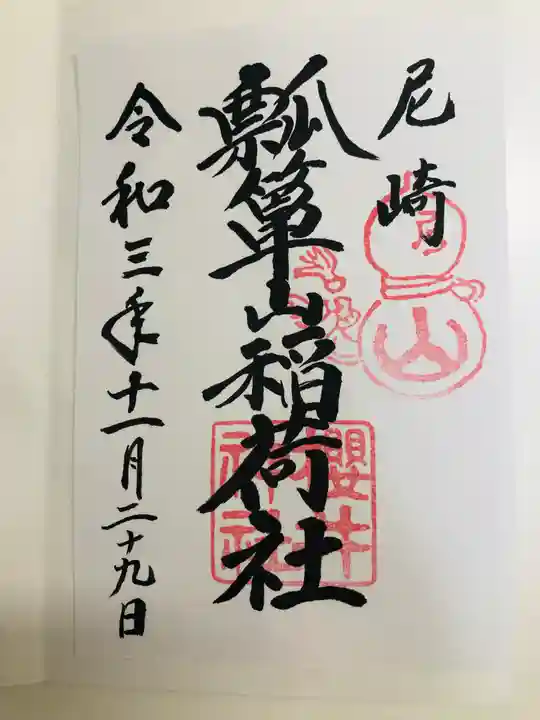 尼崎
瓢箪山稲荷社
令和三年十一月二十九日
櫻井
神社
山